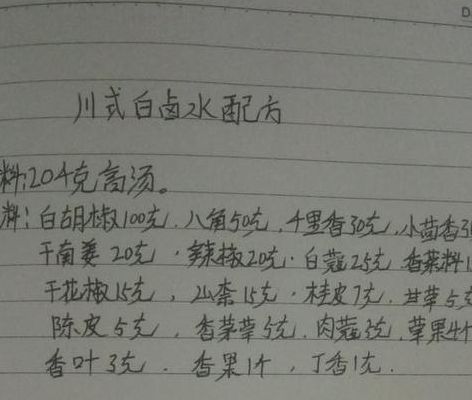 D
川式白卤水配方
料:204克高汤。
料:白胡椒100克.八角50克.千里香30克.小茴香3
干南姜20克.辣椒20克.白蔻25克 香菜料1
干花椒15克,山柰15克.桂皮7克.甘草5克
陈皮5克.香茅草5克.肉蔻3克.草果4个
香叶3克.香果1个,丁香1克.